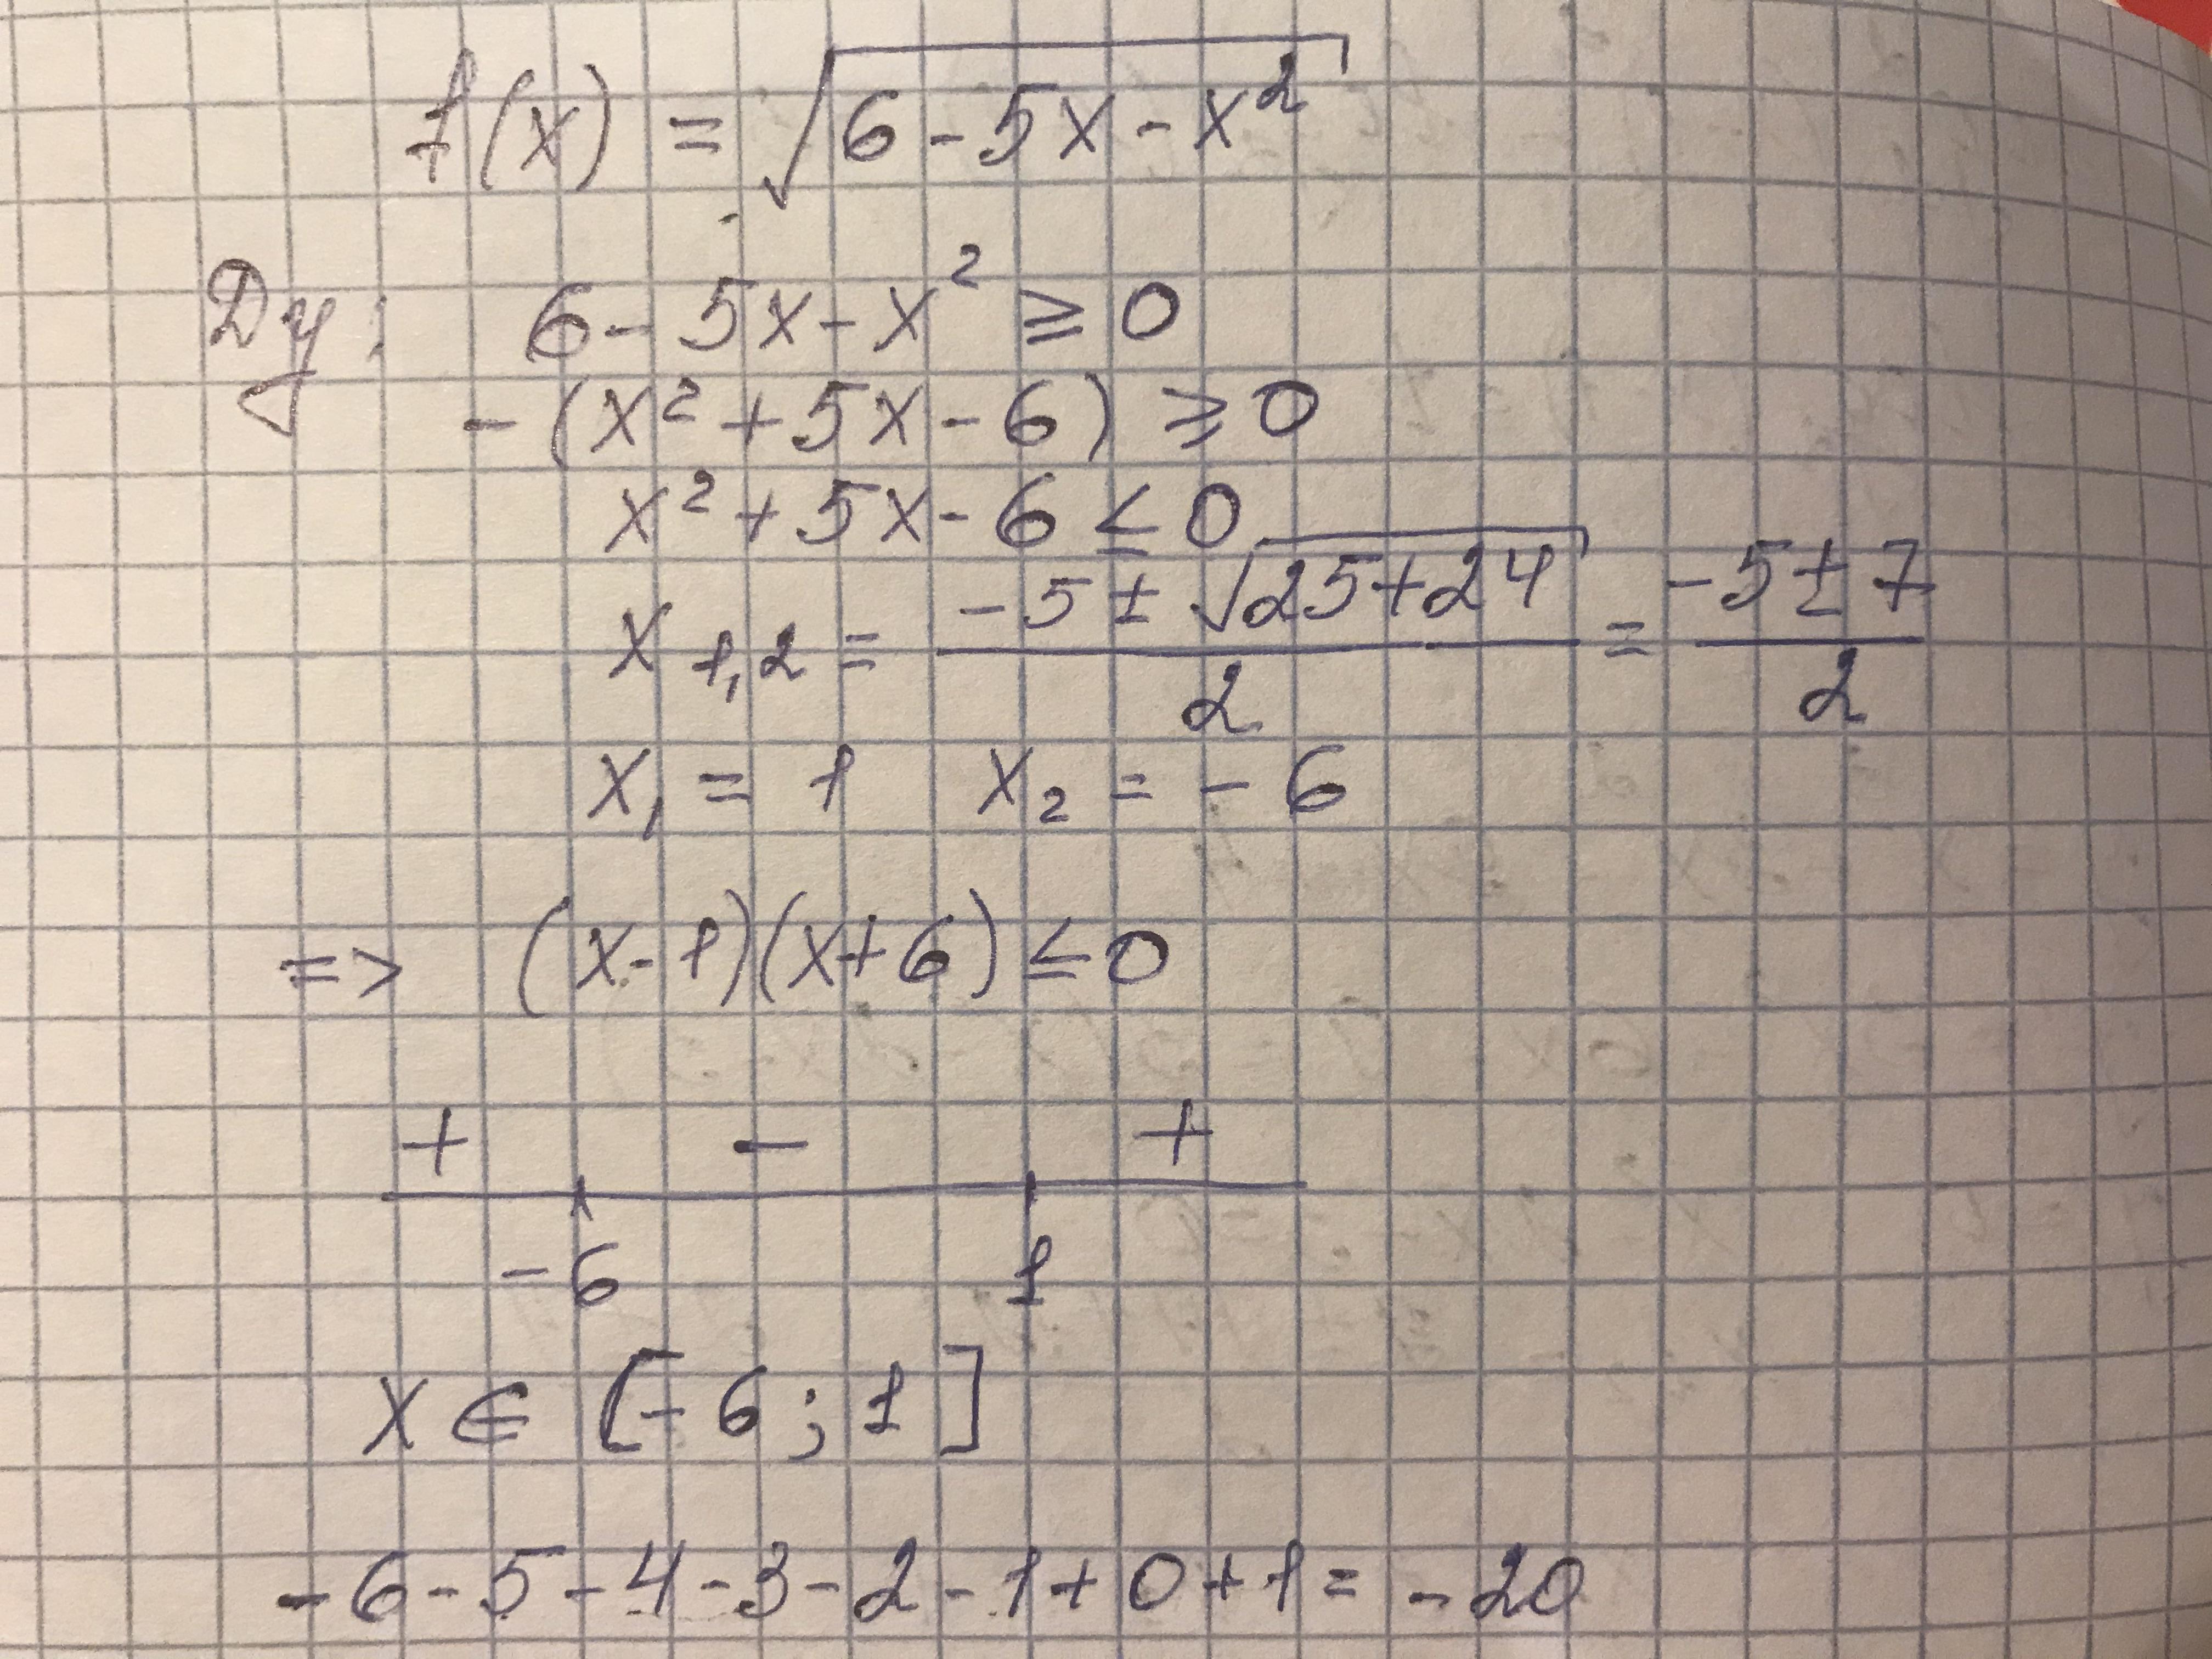 f(x) = √(6 - 5x - x²)
Dy: 6 - 5x - x² ≥ 0
- (x² + 5x - 6) ≥ 0
x² + 5x - 6 ≤ 0
x₁,₂ = (-5 ± √(25+24))/2 = (-5 ± 7)/2
x₁ = 1 x₂ = - 6
=> (x-1)(x+6) ≤ 0
+ - +
-6 1
x ∈ [-6 ; 1]
-6-5-4-3-2-1+0+1= -20